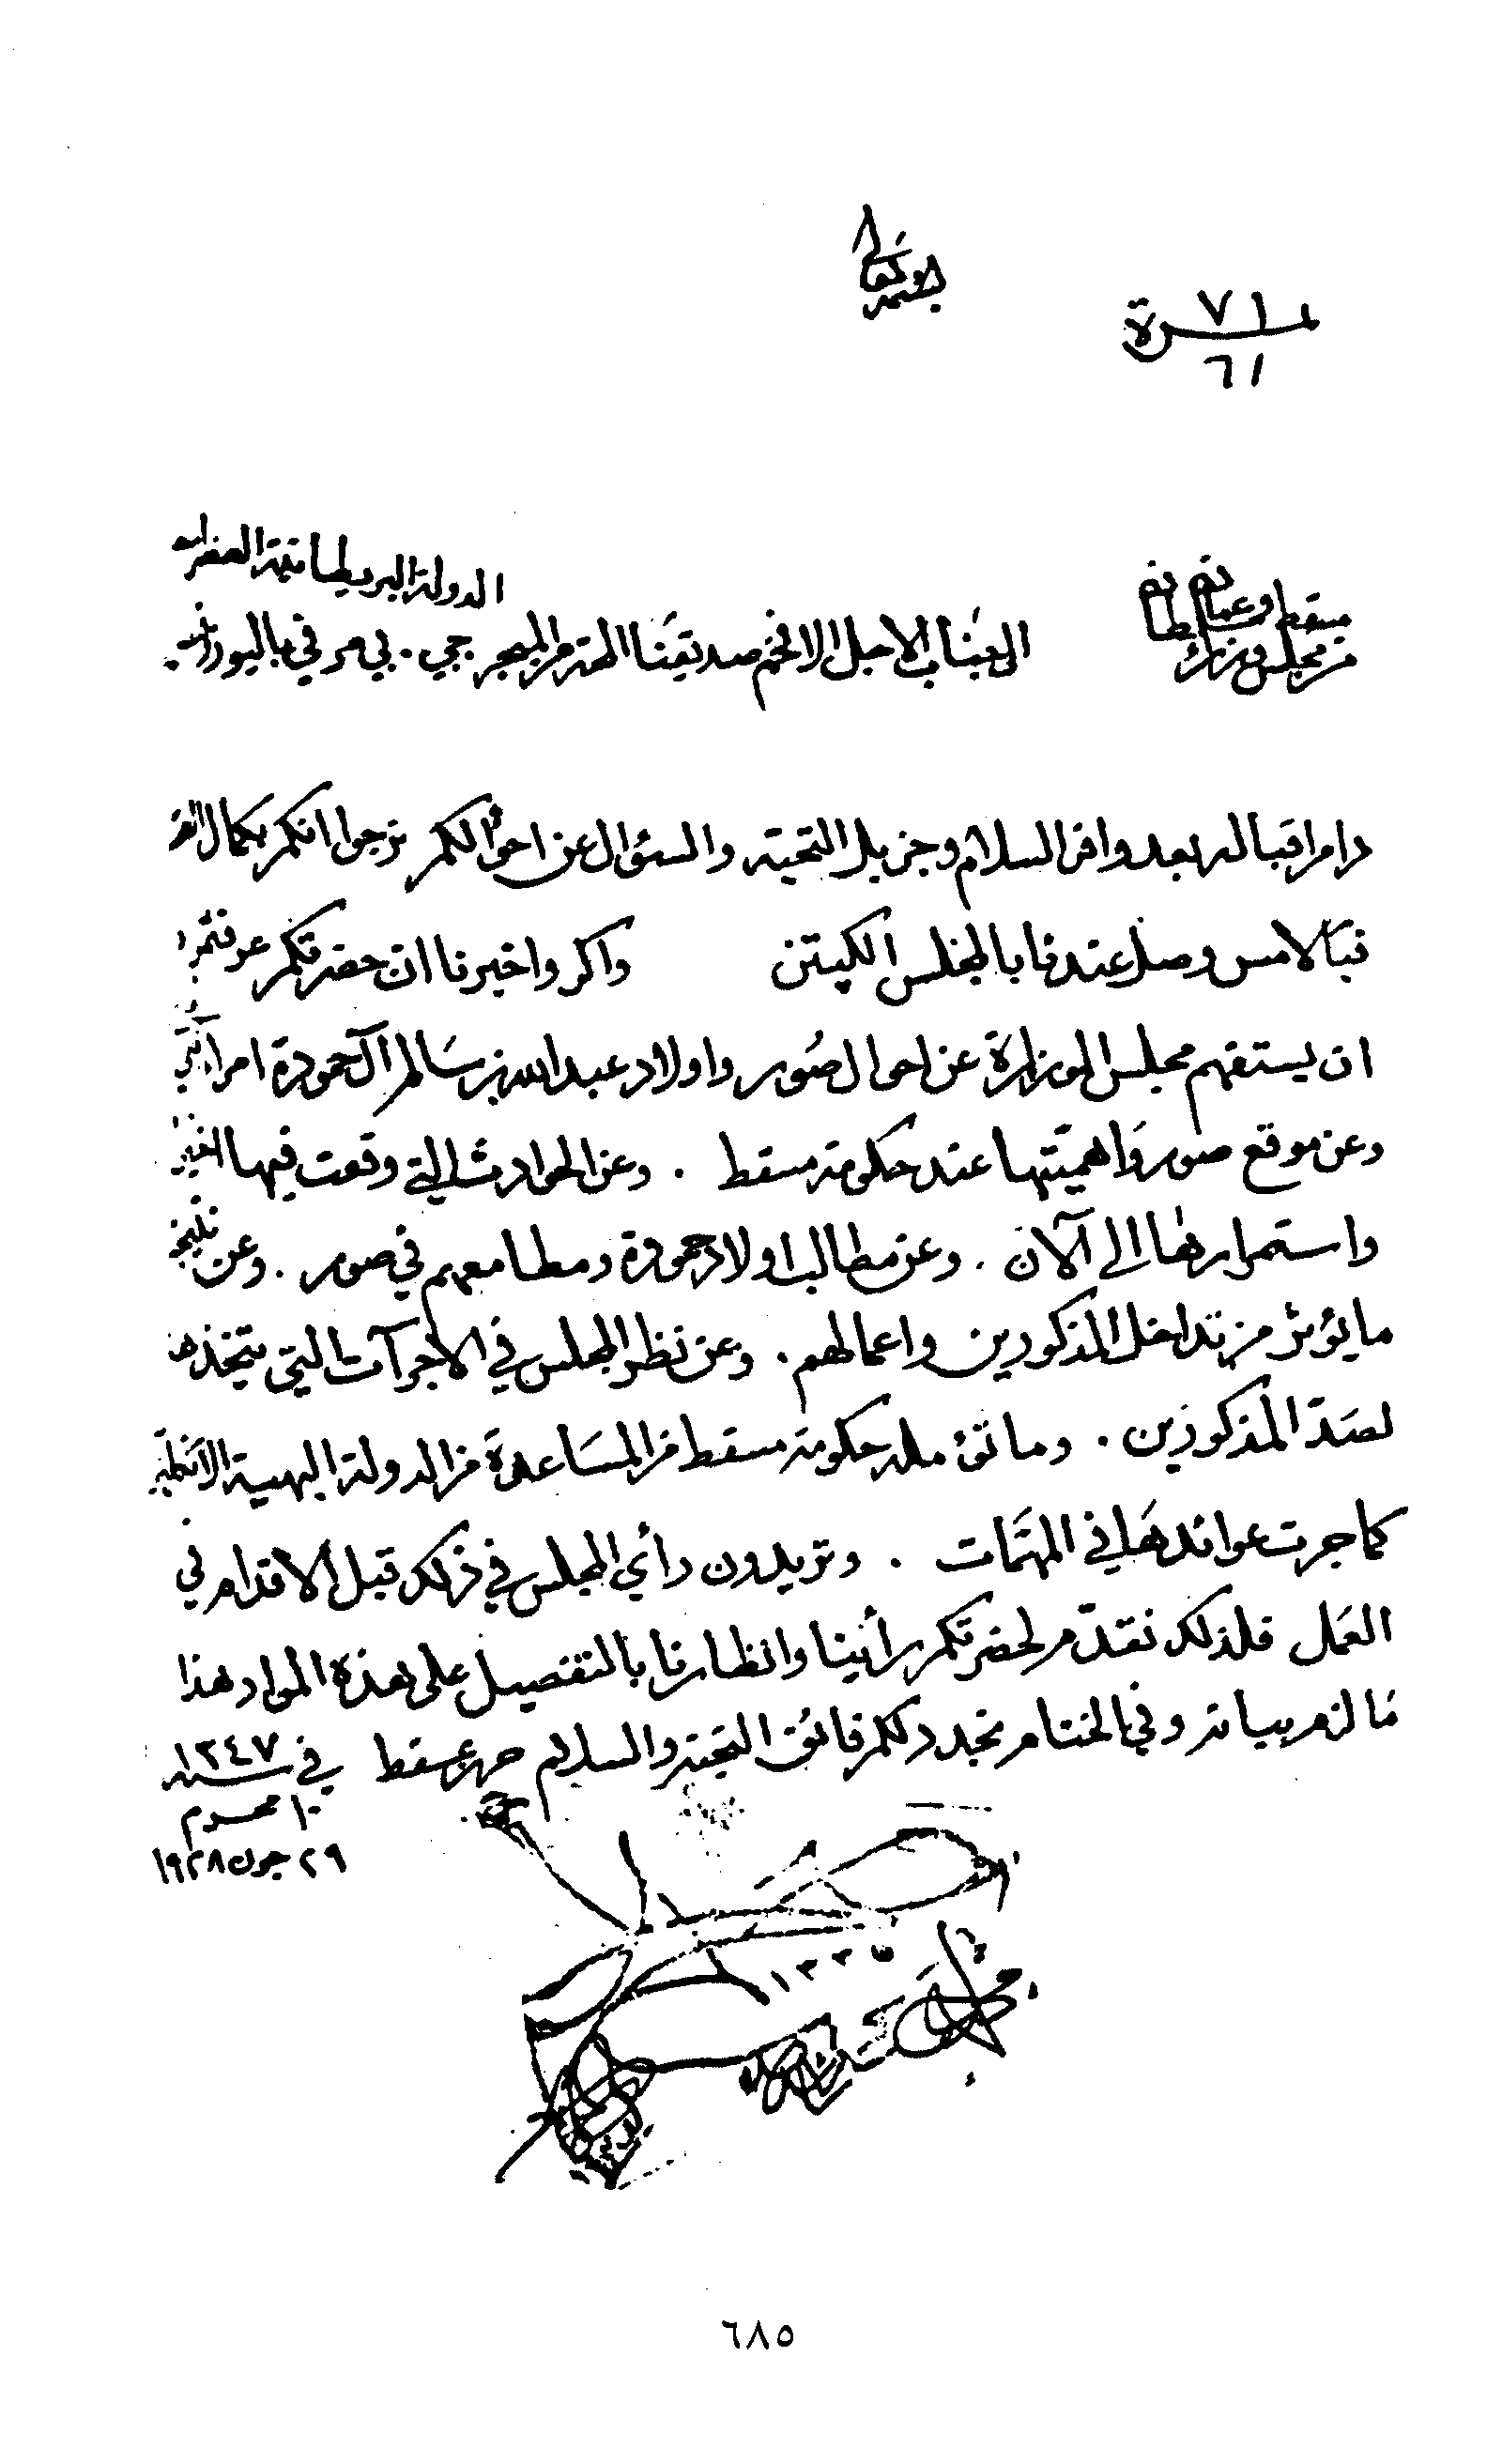 ٧١
نمرة
٦١
الدولة البريطانية العظمى
من مجلس وزراء سلطانة مسقط وعمان
الى الجناب الاجل الافخم صديقنا المحترم الميجر جي . بي مرفي باليوز
دام اقباله بعد وافر السلام وجزيل التحية والسؤال عن احوالكم نرجوا انكم بكمال
فبالامس وصل عندنا بالمجلس الكپتن واكر واخبرنا ان حضرتكم عرفتم
ان يستفهم مجلس الوزارة عن احوال صور واولاد عبدالله بن سالم آل حمودة امراء
وعن موقع صور واهميتها عند حكومة مسقط . وعن الحوادث التي وقعت فيها
واستمرارها الى الآن . وعن مطالب اولاد حمودة ومطامعهم في صور . وعن نتيجة
ما يؤثر من تداخل المذكورين واعمالهم . وعن نظر المجلس في الاجرآت التي تتخذ
لصد المذكورين . وما تؤمله حكومة مسقط من المساعدة من الدولة البهية
كما جرت عوائدها في المهمات . وتريدون رأي المجلس في ذلك قبل الاقدام في
العمل فلذلك نقدم لحضرتكم رأينا وانظارنا بالتفصيل على هذه المواد هذا
ما لزم بيانه وفي الختام نجدد لكم فائق التحية والسلام حرر بمسقط في سنة ١٣٤٧
١٠ محرم
٢٩ جون ١٩٢٨
٦٨٥